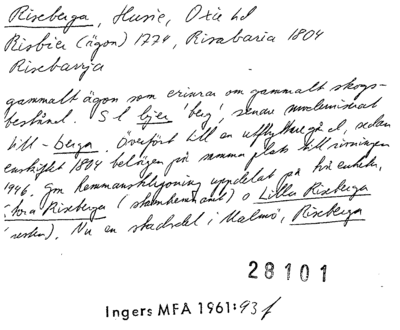 Riseberga, Husie, Oxie hd
Risbier (ägon) 1774, Risabaria 1804
Risebarrja
gammalt ägon som erinrar om gammalt skogs-
bestånd. S l bjer 'berg', senare
till -berga. Överfört till en utflyttaregård, sedan
enskiftet 1804 belägen på samma plats till rivningen
1946. Gm hemmansklyvning uppdelat på två enheter,
Stora Riseberga (stamhemmanet) o Lilla Riseberga
(resten). Nu en stadsdel i Malmö, Riseberga
28101
Ingers MFA 1961:93 f